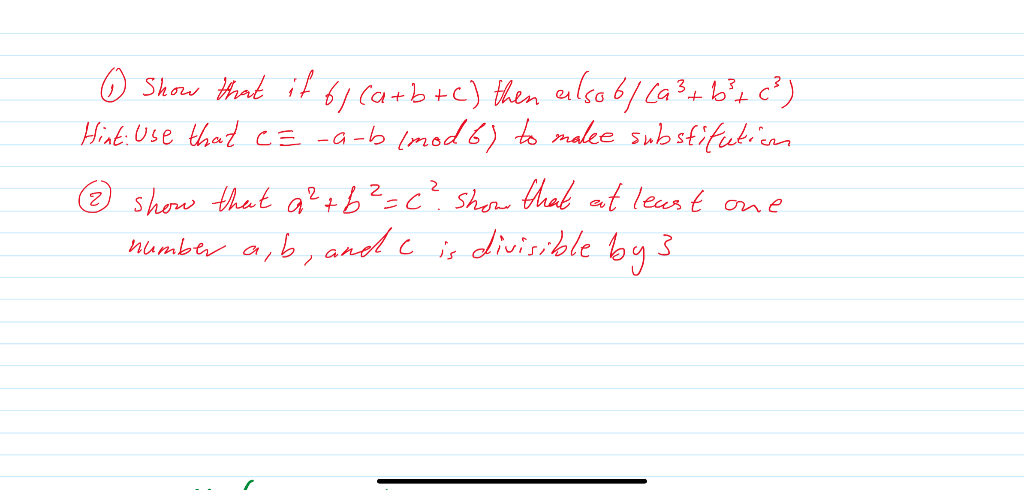 ① Show that if 6/(a+b+c) then also 6/(a³+b³+c³)
Hint: Use that c ≡ -a-b (mod 6) to make substitution
② show that a²+b²=c². Show that at least one
number a, b, and c is divisible by 3